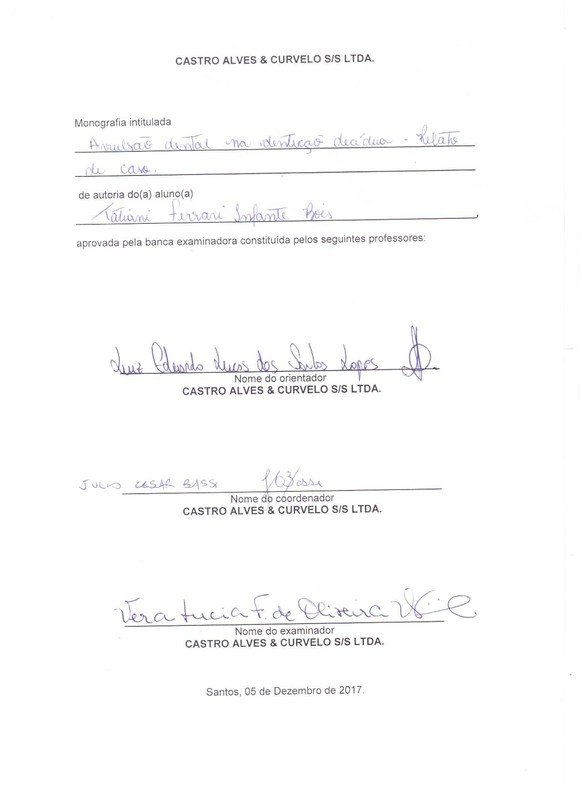 CASTRO ALVES & CURVELO S/S LTDA.
Monografia intitulada
Avulsão dental na dentição decídua - Relato
de caso.
de autoria do(a) aluno(a)
Tatiani Ferrari Infante Bois
aprovada pela banca examinadora constituída pelos seguintes professores:
Luiz Eduardo Lucas dos Santos Lopes
Nome do orientador
CASTRO ALVES & CURVELO S/S LTDA.
JULIO CESAR BASSI JCBassi
Nome do coordenador
CASTRO ALVES & CURVELO S/S LTDA.
Vera Lucia F. de Oliveira
Nome do examinador
CASTRO ALVES & CURVELO S/S LTDA.
Santos, 05 de Dezembro de 2017.